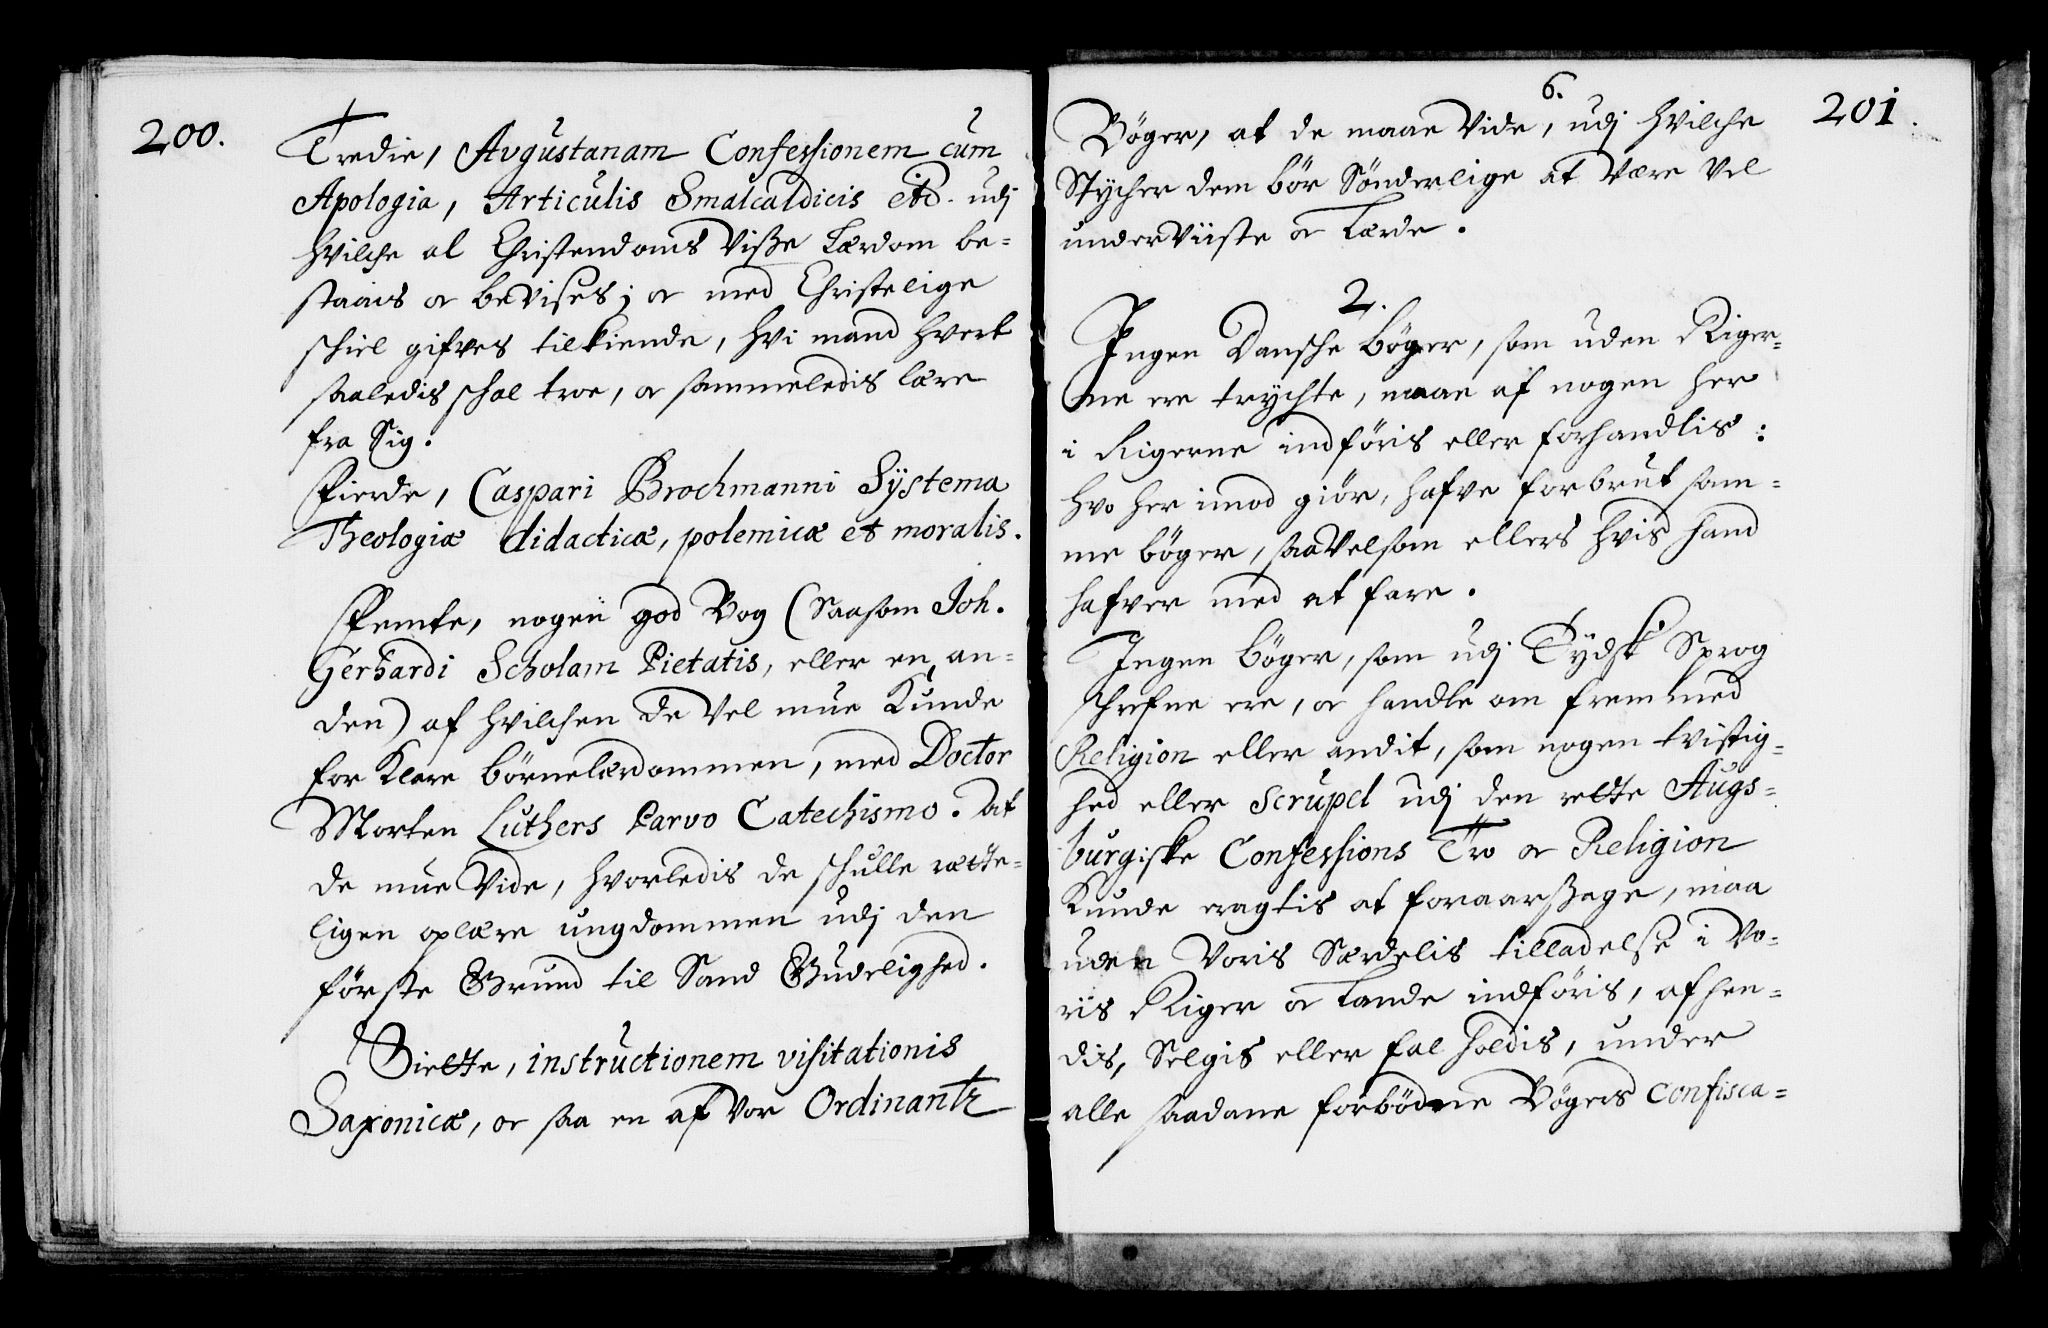 200.
Tredie, Avgustanam Confessionem cum
Apologia, Articulis Smalcaldicis etc. udj
hvilche al Christendoms visse Lærdom be=
staais oc bevises; oc med Christelige
schiel gifves tilkiende, hvi mand hvert
saaledis schal troe, oc sammeledis lære
fra Sig.
Fierde, Caspari Brochmanni Systema
Theologiæ didacticæ, polemicæ et moralis.
Femte, nogen god Bog (Saasom Joh.
Gerhardi Scholam Pietatis, eller en an=
den) af hvilchen de vel mue Kunde
forklare børnelærdommen, med Doctor
Morten Luthers Parvo Catechismo. At
de mue vide, hvorledis de schulle rætte=
ligen oplære ungdommen udj den
første Grund til Sand Gudelighed.
Siette, instructionem visitationis
Saxonicæ, oc saa en af vor Ordinantz
6.
201.
Bøger, at de maae vide, udj hvilche
Stycher dem bør Sønderlige at være vel
underviiste oc Lærde.
2.
Ingen Dansche bøger, som uden Riger=
ne ere trychte, maae af nogen her
i Rigerne indføris eller forhandlis:
hvo her imod giør, hafve forbrut sam=
me bøger, saavelsom ellers hvis hand
hafver med at fare.
Ingen bøger, som udj Tydsk Sprog
schrefne ere, oc handle om fremmed
Religion eller andit, som nogen tvistig=
hed eller Scrupel udj den rette Augs=
burgiske Confessions Tro oc Religion
Kunde eragtis at foraarsage, maa
uden Voris Særdelis tilladelse i Vo=
ris Riger oc Lande indføris, afhen=
dis, Selgis eller fal holdis, under
alle saadane forbødne Bøgers confisca=